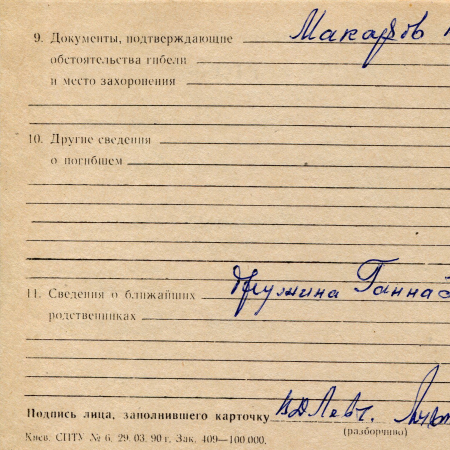 9. Документы, подтверждающие Макаров
обстоятельства гибели
и место захоронения
10. Другие сведения
о погибшем
11. Сведения о ближайших дружина Ганна
родственниках
Подпись лица, заполнившего карточку
(разборчиво)
Киев. СПТУ № 6. 29. 03. 90 г. Зак. 409—100.000.